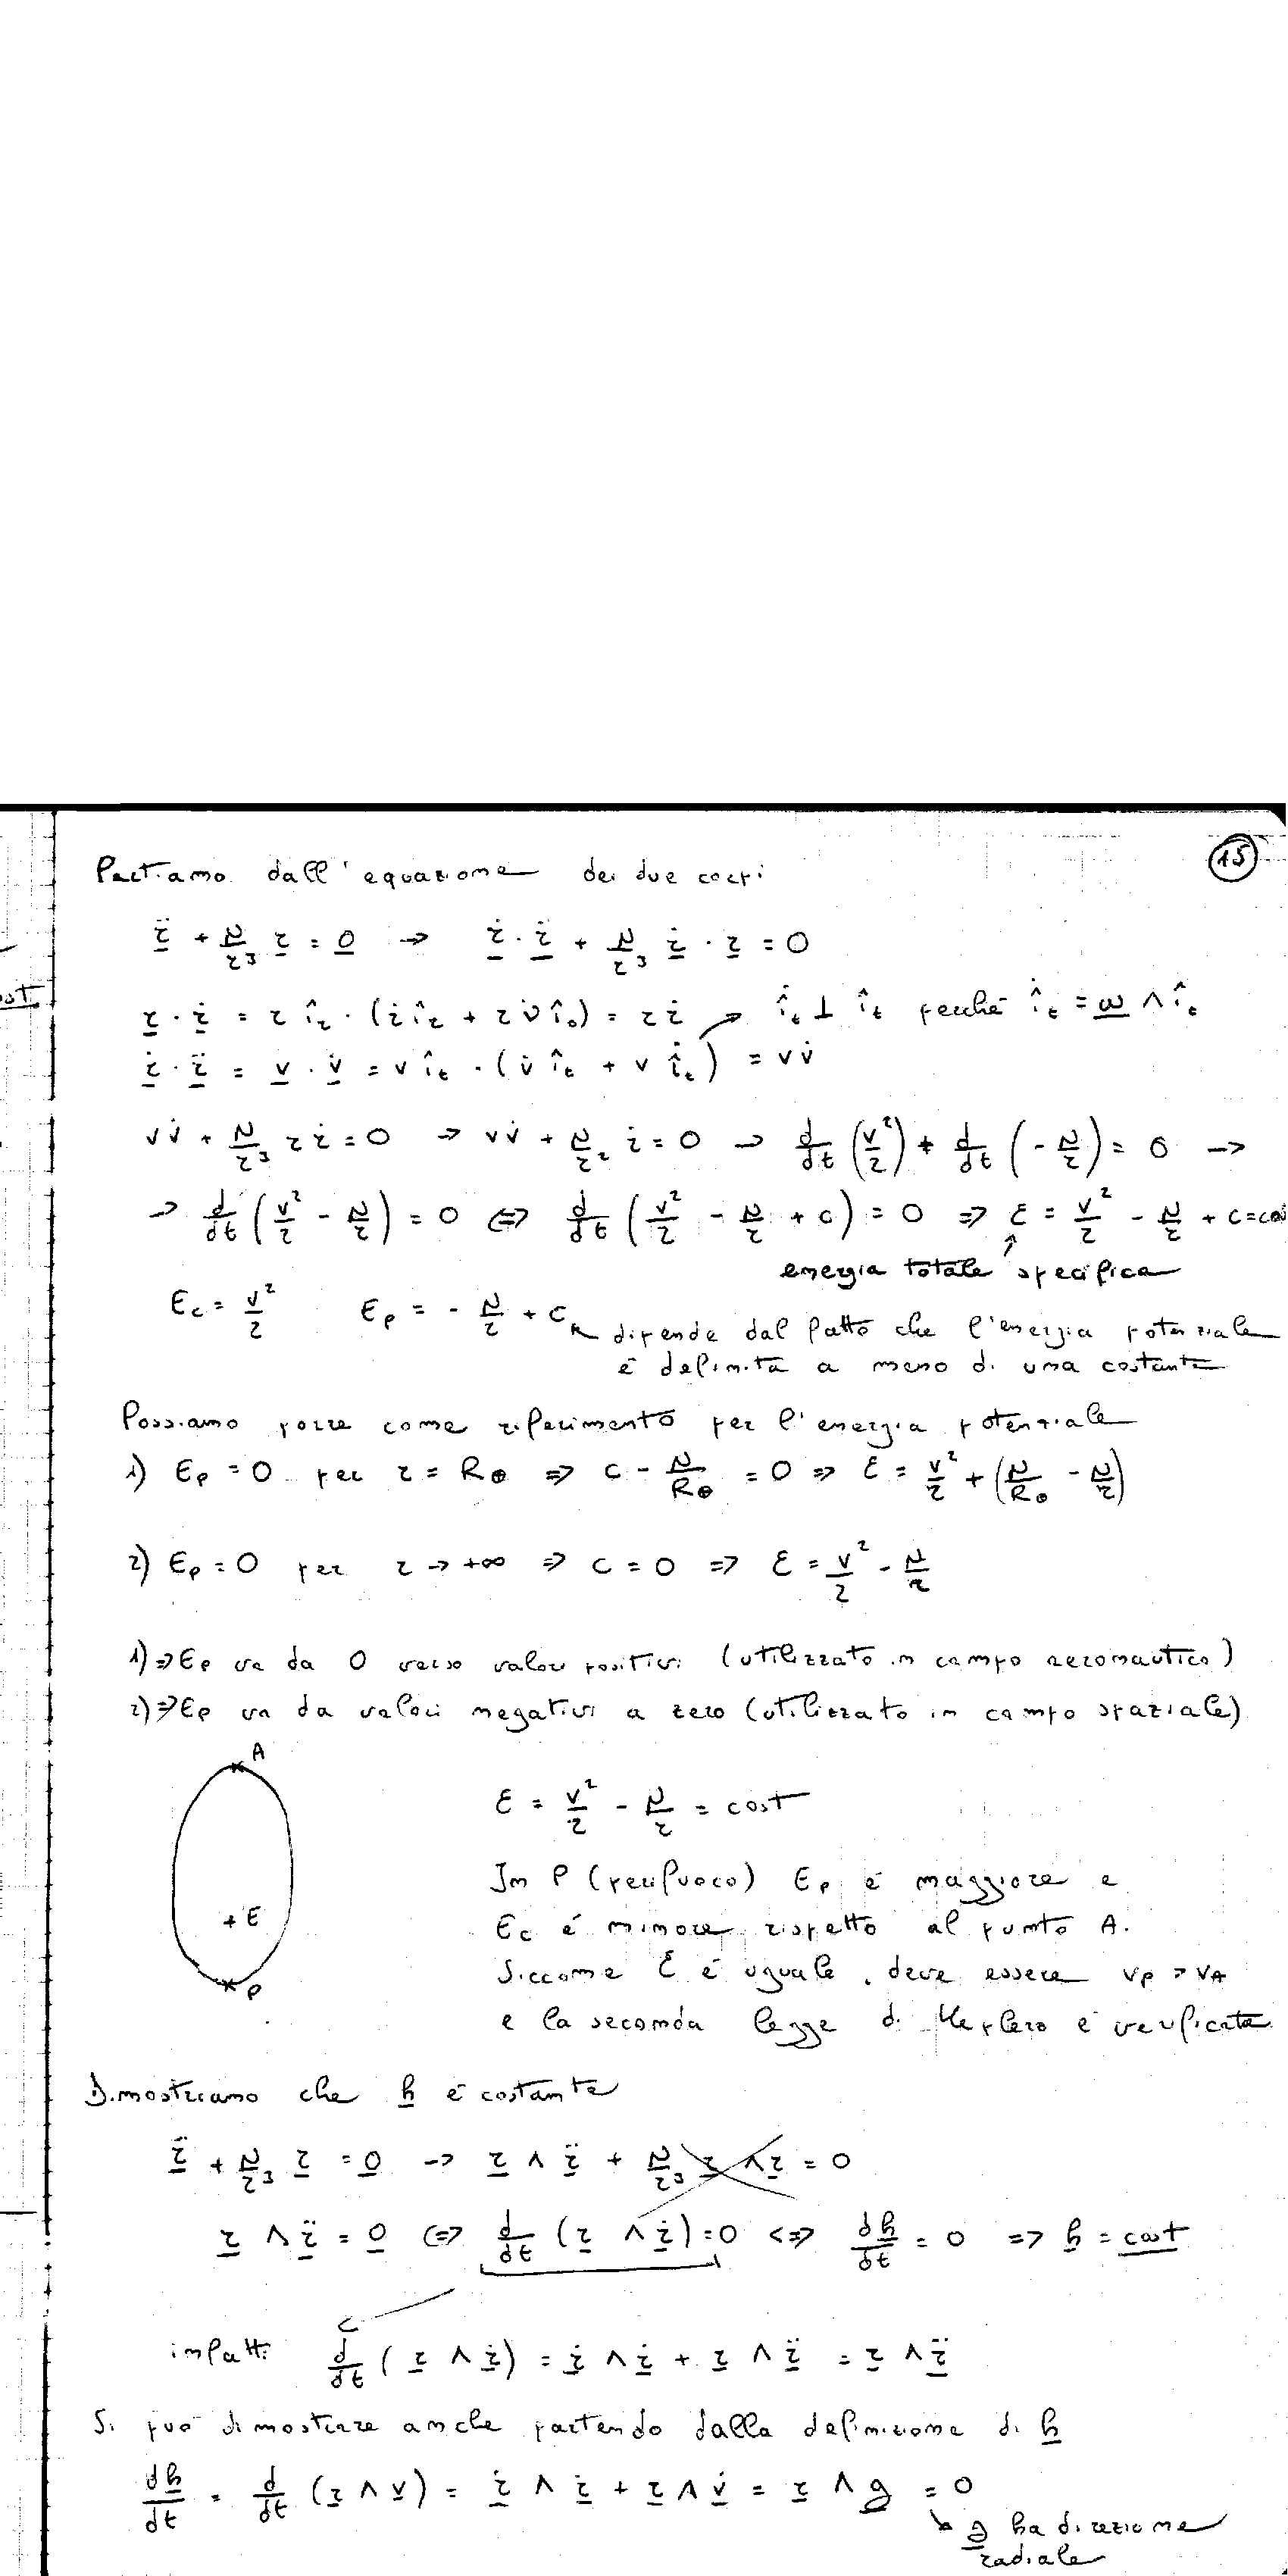 15
Partiamo dall'equazione dei due corpi
r̈ + μ/r³ r = 0 → ṙ · r̈ + μ/r³ ṙ · r = 0
ost.
r · ṙ = r î_r · (ṙ î_r + r ν̇ î_θ) = r ṙ → î̇_t ⊥ î_t perché î̇_t = ω ∧ î_t
ṙ · r̈ = v · v̇ = v î_t · (v̇ î_t + v î̇_t) = v v̇
v v̇ + μ/r³ r ṙ = 0 → v v̇ + μ/r² ṙ = 0 → d/dt (v²/2) + d/dt (- μ/r) = 0 →
→ d/dt (v²/2 - μ/r) = 0 ⇔ d/dt (v²/2 - μ/r + c) = 0 ⇒ ℰ = v²/2 - μ/r + c = cos
energia totale specifica
E_c = v²/2 E_p = - μ/r + c dipende dal fatto che l'energia potenziale
è definita a meno di una costante
Possiamo porre come riferimento per l'energia potenziale
1) E_p = 0 per r = R⊕ ⇒ c - μ/R⊕ = 0 ⇒ ℰ = v²/2 + (μ/R⊕ - μ/r)
2) E_p = 0 per r → +∞ ⇒ c = 0 ⇒ ℰ = v²/2 - μ/r
1) ⇒ E_p va da 0 verso valori positivi (utilizzato in campo aeronautico)
2) ⇒ E_p va da valori negativi a zero (utilizzato in campo spaziale)
A
E
P
ℰ = v²/2 - μ/r = cost
In P (perifuoco) E_p è maggiore e
E_c è minore rispetto al punto A.
Siccome ℰ è uguale, deve essere v_P > v_A
e la seconda legge di Keplero è verificata
Dimostriamo che h è costante
r̈ + μ/r³ r = 0 → r ∧ r̈ + μ/r³ r ∧ r = 0
r ∧ r̈ = 0 ⇔ d/dt (r ∧ ṙ) = 0 ⇔ dh/dt = 0 ⇒ h = cost
infatti d/dt (r ∧ ṙ) = ṙ ∧ ṙ + r ∧ r̈ = r ∧ r̈
Si può dimostrare anche partendo dalla definizione di h
dh/dt = d/dt (r ∧ v) = ṙ ∧ ṙ + r ∧ v̇ = r ∧ g = 0
g ha direzione
radiale